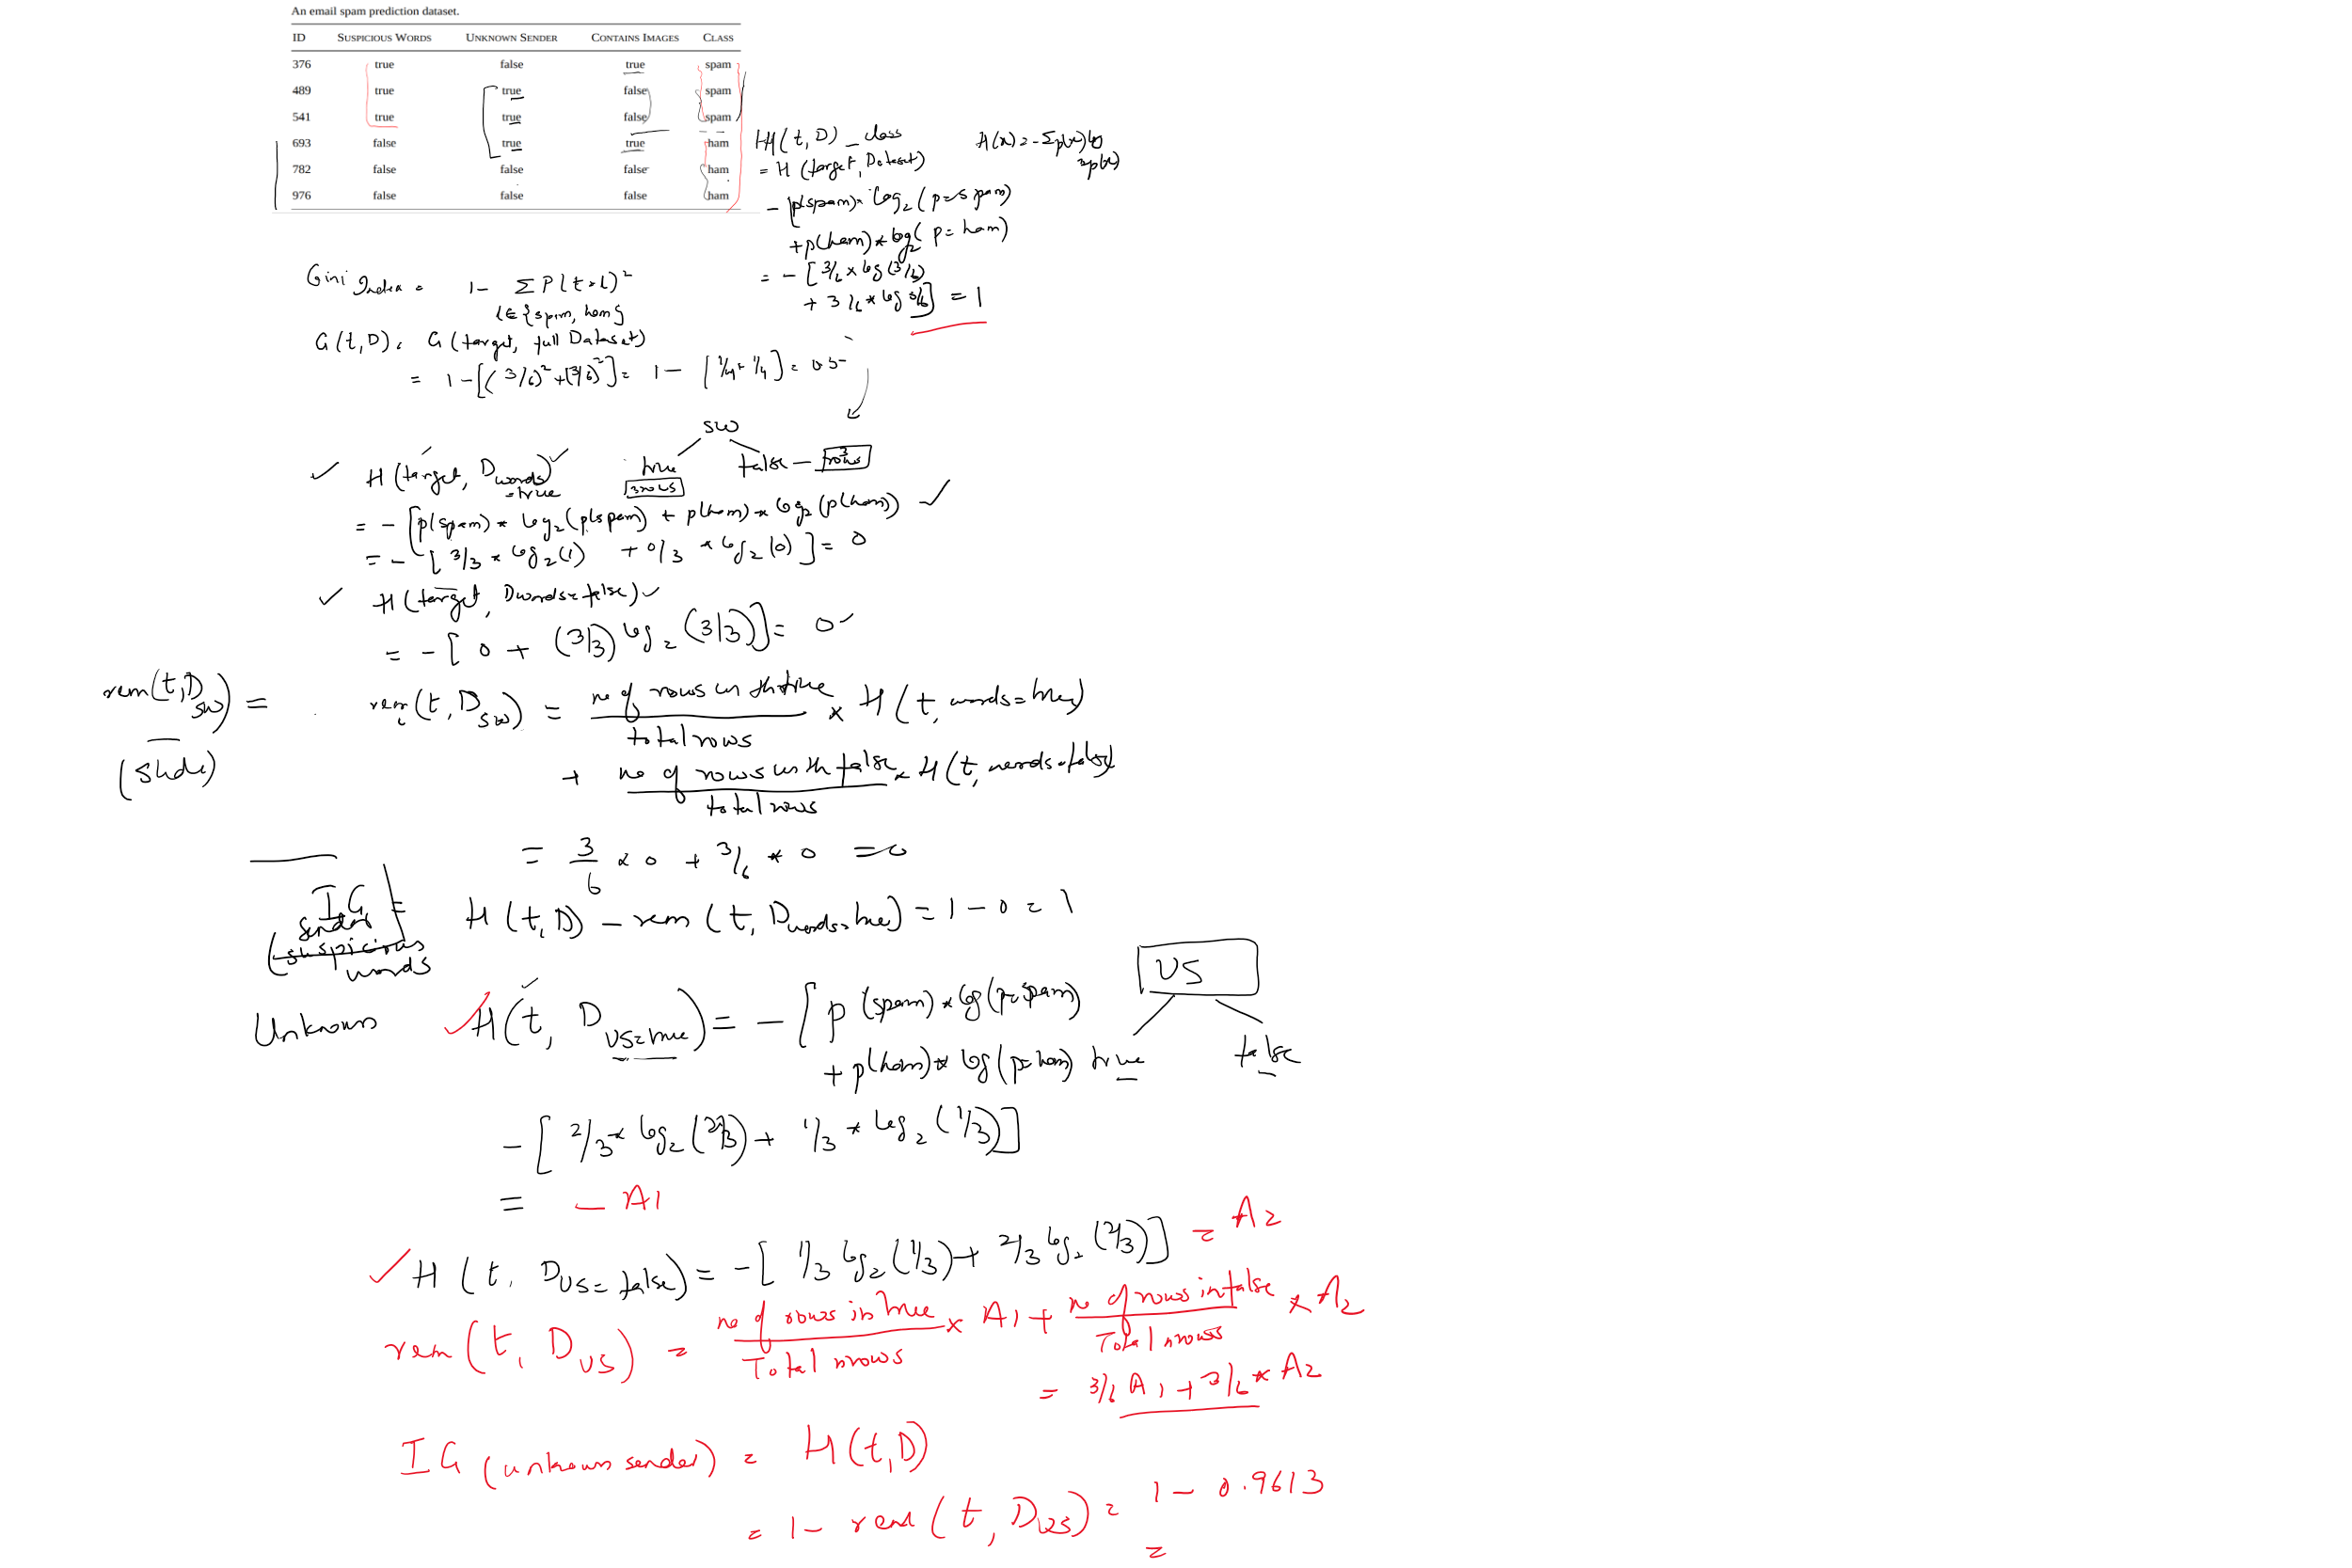 An email spam prediction dataset.
ID SUSPICIOUS WORDS UNKNOWN SENDER CONTAINS IMAGES CLASS
376 true false true spam
489 true true false spam
541 true true false spam
693 false true true ham
782 false false false ham
976 false false false ham
H(t, D) _ class
= H (target, Dataset)
- [p(spam) * log₂ (p=spam)
+ p(ham) * log₂ ( p = ham)
= - [ 3/6 x log (3/6)
+ 3/6 * log 3/6] = 1
H(x) = - Σ p(x) log
2 p(x)
Gini Index = 1 - Σ P(t=l)²
l ∈ {spam, ham}
G(t, D) = G (target, full Dataset)
= 1 - [(3/6)² + (3/6)²] = 1 - [1/4 + 1/4] = 0.5
SW
true false - 3 rows
3 rows
H (target, D words = true)
= - [p(spam) * log₂ (p(spam) + p(ham) * log₂ (p(ham))
= - [ 3/3 * log₂ (1) + 0/3 * log₂ (0) ] = 0
H (target, D words = false)
= - [ 0 + (3/3) log₂ (3/3)] = 0
rem(t, D SW) =
(slide)
rem (t, D SW) = no of rows with true / total rows x H (t, words = true)
+ no of rows with false / total rows x H (t, words = false)
= 3/6 x 0 + 3/6 * 0 = 0
IG = H (t, D) - rem (t, D words = true) = 1 - 0 = 1
sender
(suspicious
words
US
true false
Unknown H(t, D US = true) = - [ p (spam) * log (p=spam)
+ p(ham) * log (p=ham)
- [ 2/3 * log₂ (2/3) + 1/3 * log₂ (1/3)]
= - A1
H (t, D US = false) = - [ 1/3 log₂ (1/3) + 2/3 log₂ (2/3)] = A2
rem (t, D US) = no of rows in true / Total nrows x A1 + no of rows in false / Total nrows * A2
= 3/6 A1 + 3/6 * A2
IG (unknown sender) = H (t, D)
= 1 - rem (t, D US) = 1 - 0.9613
=